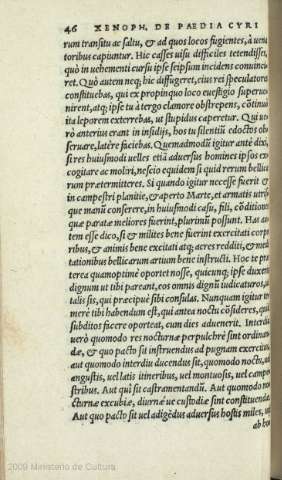 46 XENOPH. DE PAEDIA CYRI
rum transitu ac saltu, & ad quos locos fugientes, à uena
toribus capiuntur. Hic casses uisu difficiles tetendisse,
quò in uehementi cursu ipse seipsum incidens conuincí
ret. Quò autem neq; hic diffugeret, eius rei speculatores
constituebas, qui ex propinquo loco euestigio superue
nirent, atq; ipse tu à tergo clamore obstrepens, cõtinuò
ita leporem exterrebas, ut stupidus caperetur. Qui ue
rò anterius erant in insidijs, hos tu silentiũ edoctos ob
seruare, latère faciebas. Quemadmodũ igitur antè dixi,
si res huiusmodi uelles etiã aduersus homines ipsos ex
cogitare ac moliri, nescio equidem si quid rerum bellica
rum prætermitteres. Si quando igitur necesse fuerit &
in campestri planitie, & aperto Marte, et armatis utris
que manũ conserere, in huiusmodi casu, fili, cõditiones
quæ paratæ meliores fuerint, plurimũ possunt. Has au
tem esse dico, si & milites bene fuerint exercitati corpo
ribus, & animis bene excitati atq; acres redditi, & medi
tationibus bellicarum artium bene instructi. Hoc te præ
terea quamoptimè oportet nosse, quicunq; ipse duxeris
dignum ut tibi pareant, eos omnis dignũ iudicaturos, ut
talis sis, qui præcipuè sibi consulas. Nunquam igitur te
merè tibi habendum est, qui antea noctu cõsideres, quid
subditos facere oporteat, cum dies aduenerit. Interdiu
uerò quomodo res nocturnæ perpulchrè sint ordinan
dæ, & quo pacto sit instruendus ad pugnam exercitus,
aut quomodo interdiu ducendus sit, quomodo noctu, uel
angustis, uel latis itineribus, uel montuosis, uel campe
stribus. Aut qui sit castrametandũ. Aut quomodo no
cturnæ excubiæ, diurnæ ue custodiæ sint constituendæ.
Aut quo pacto sit uel adigẽdus aduersus hostis miles, uel
ab hos
2009 Ministerio de Cultura